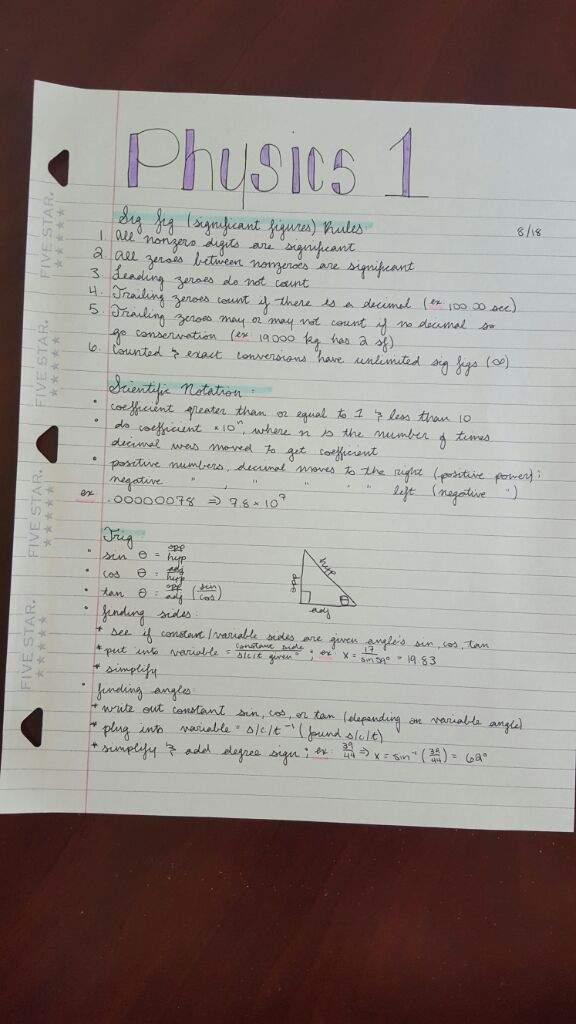 Physics 1
Sig fig (significant figures) Rules
8/18
1. All nonzero digits are significant
2. All zeroes between nonzeroes are significant
3. Leading zeroes do not count
4. Trailing zeroes count if there is a decimal (ex 100.00 sec)
5. Trailing zeroes may or may not count if no decimal so
go conservation (ex 19000 kg has 2 sf)
6. Counted & exact conversions have unlimited sig figs (∞)
Scientific Notation:
• coefficient greater than or equal to 1 & less than 10
• do coefficient × 10ⁿ, where n is the number of times
decimal was moved to get coefficient
• positive numbers, decimal moves to the right (positive power);
negative " , " " " " left (negative ")
ex .00000078 ⇒ 7.8 × 10⁷
Trig
• sin θ = opp/hyp
• cos θ = adj/hyp
• tan θ = opp/adj (sin/cos)
opp
hyp
adj
θ
• finding sides:
* see if constant/variable sides are given angle's sin, cos, tan
* put into variable = constant side/s/c/t given °; ex x = 17/sin 59° = 19.83
* simplify
• finding angles:
* write out constant sin, cos, or tan (depending on variable angle)
* plug into variable = s/c/t⁻¹ (found s/c/t)
* simplify & add degree sign; ex: 39/44 ⇒ x = sin⁻¹ (39/44) = 62°
FIVE STAR.
FIVE STAR.
FIVE STAR.
FIVE STAR.